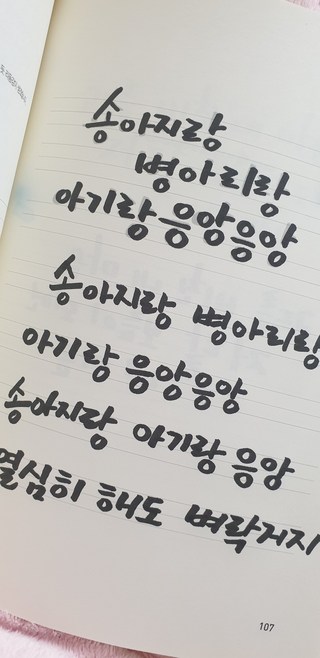 송아지랑
병아리랑
아기랑 응앙응앙
송아지랑 병아리랑
아기랑 응앙응앙
송아지랑 아기랑 응앙
열심히 해도 벼락거지
107